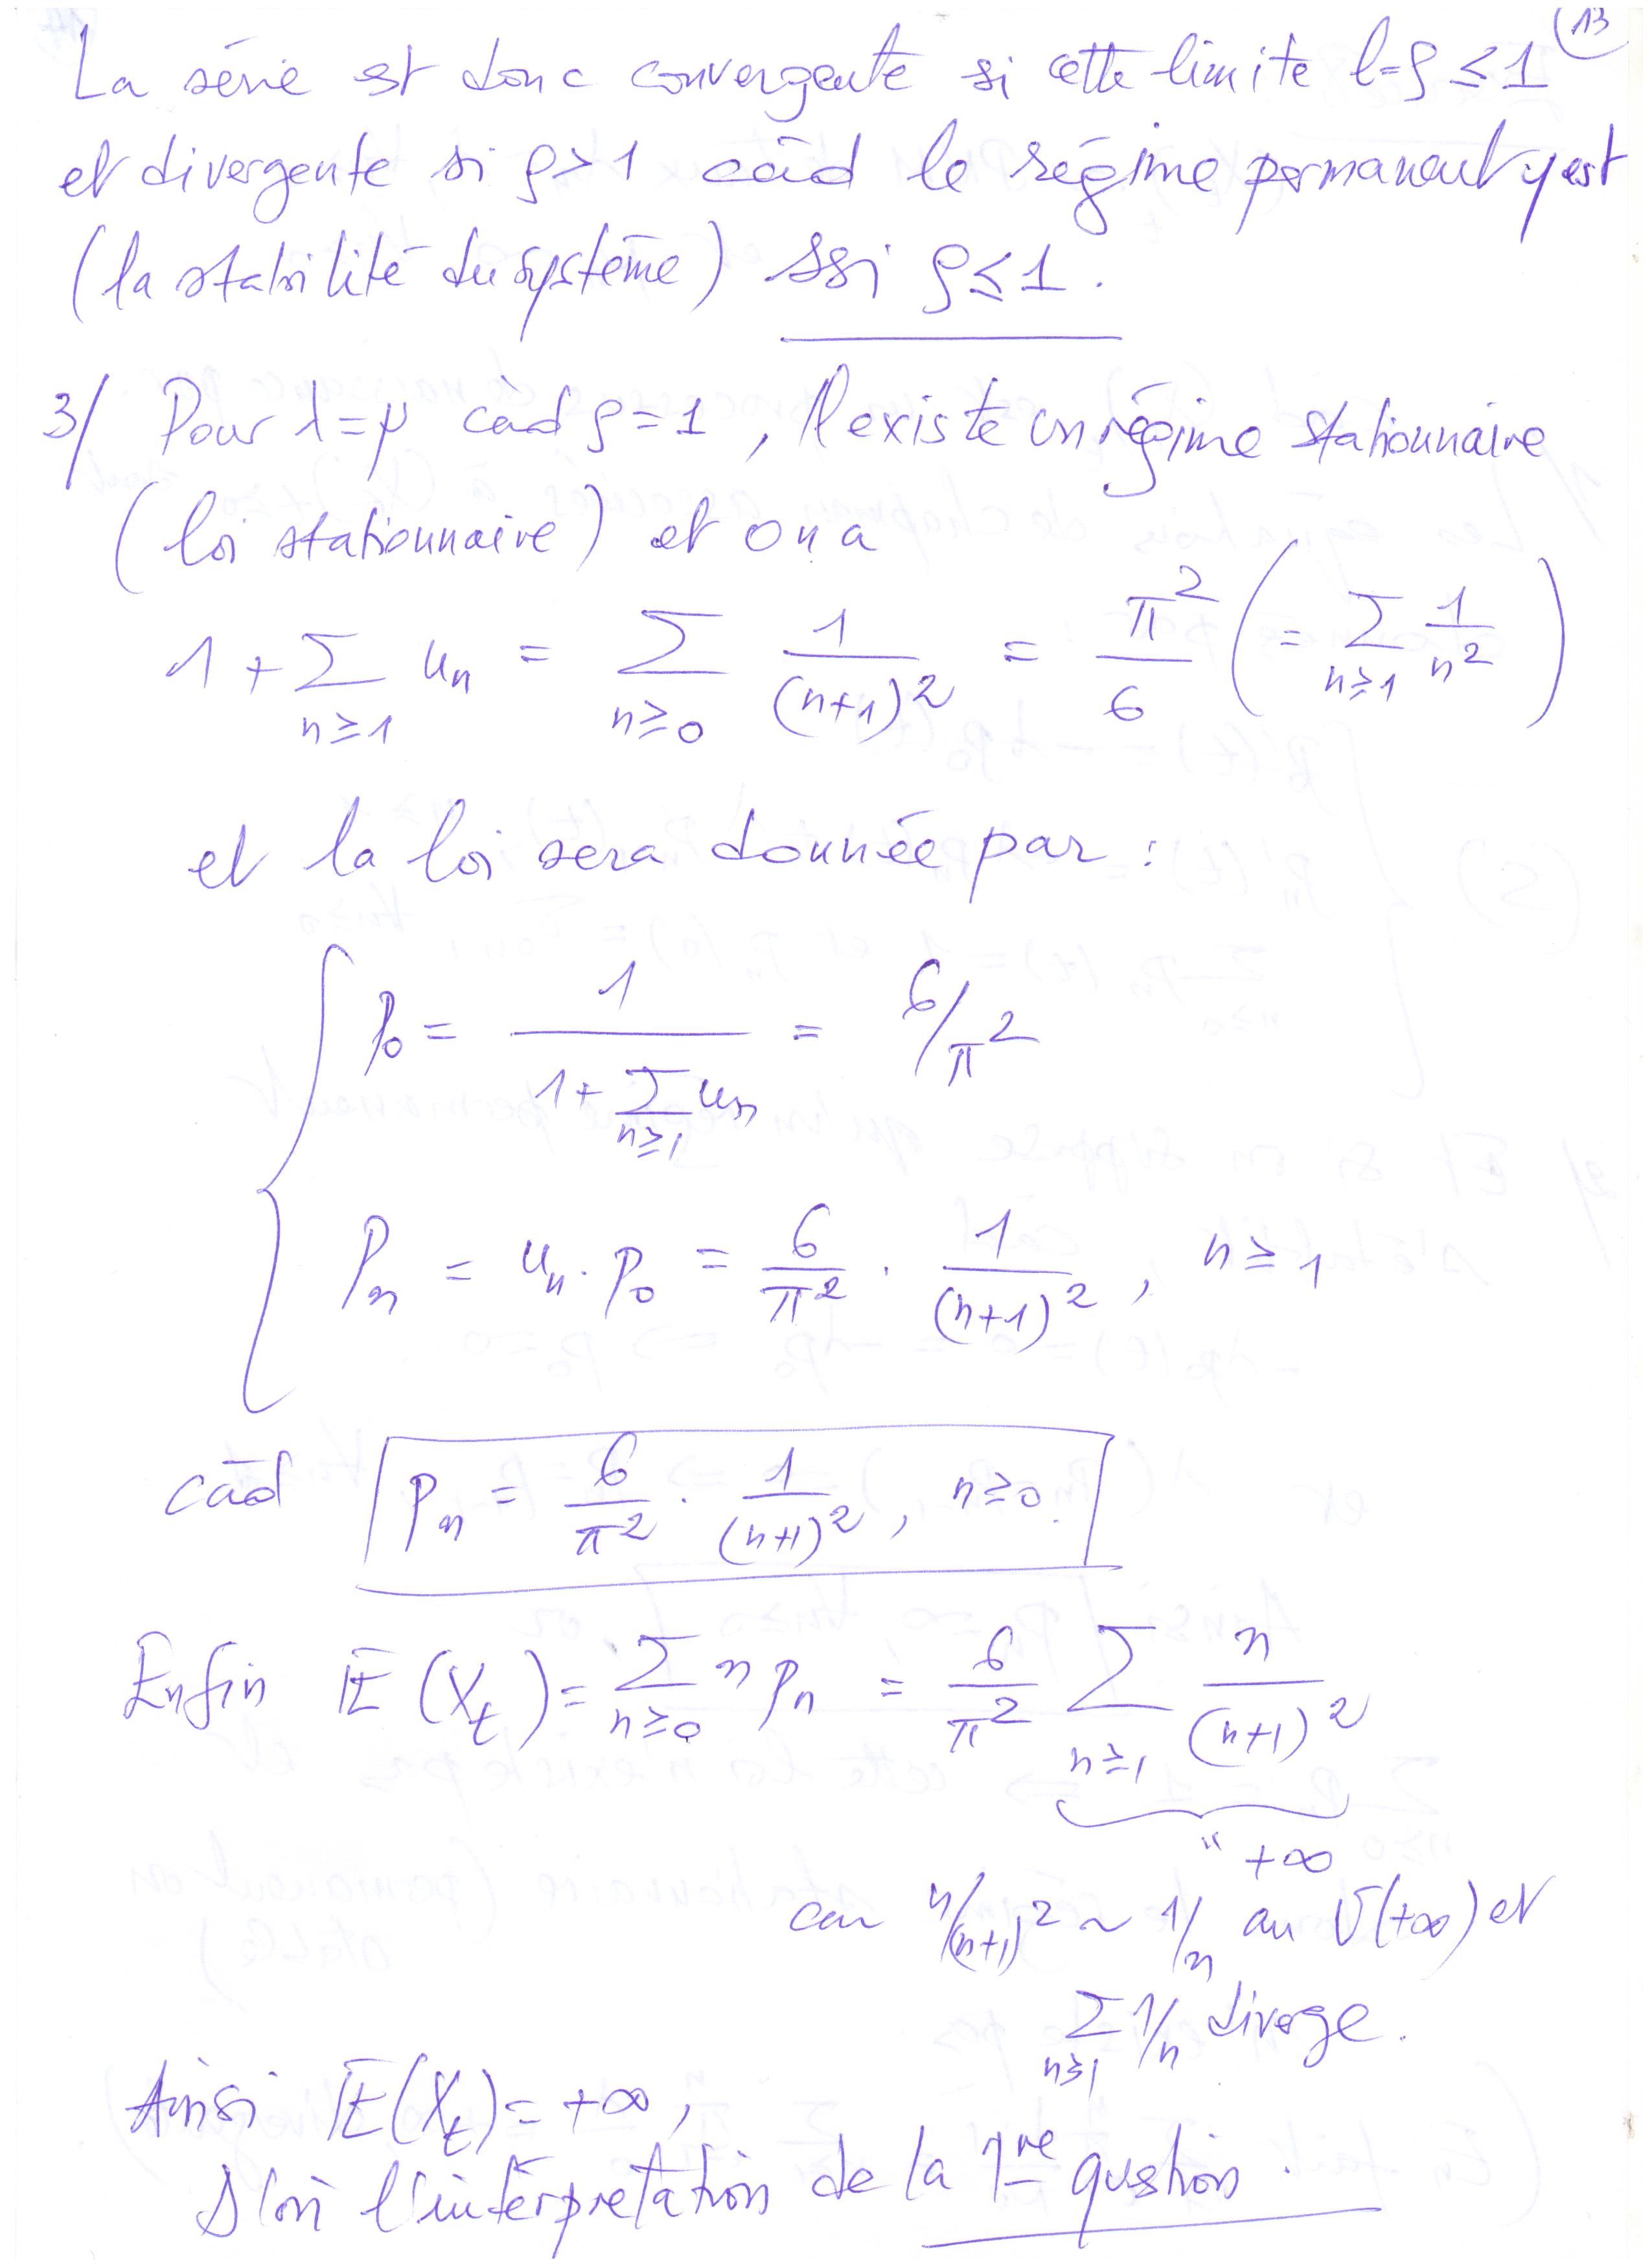 13
La série est donc convergente si cette limite l=ρ ≤ 1
et divergente si ρ>1 càd le régime permanent y est
(la stabilité du système) ssi ρ≤1.
3/ Pour λ=μ càd ρ=1, Il existe un régime stationnaire
(loi stationnaire) et on a
1 + Σ_{n≥1} u_n = Σ_{n≥0} 1/(n+1)² = π²/6 (= Σ_{n≥1} 1/n²)
et la loi sera donnée par :
{ p₀ = 1/(1+Σ_{n≥1} u_n) = 6/π²
p_n = u_n . p₀ = 6/π² . 1/(n+1)², n ≥ 1
càd p_n = 6/π² . 1/(n+1)², n≥0.
Enfin E(X_t) = Σ_{n≥0} n p_n = 6/π² Σ_{n≥1} n/(n+1)²
" +∞
car n/(n+1)² ~ 1/n au V(+∞) et
Σ_{n≥1} 1/n diverge.
Ainsi E(X_t) = +∞,
D'où l'interprétation de la 1re qustion.